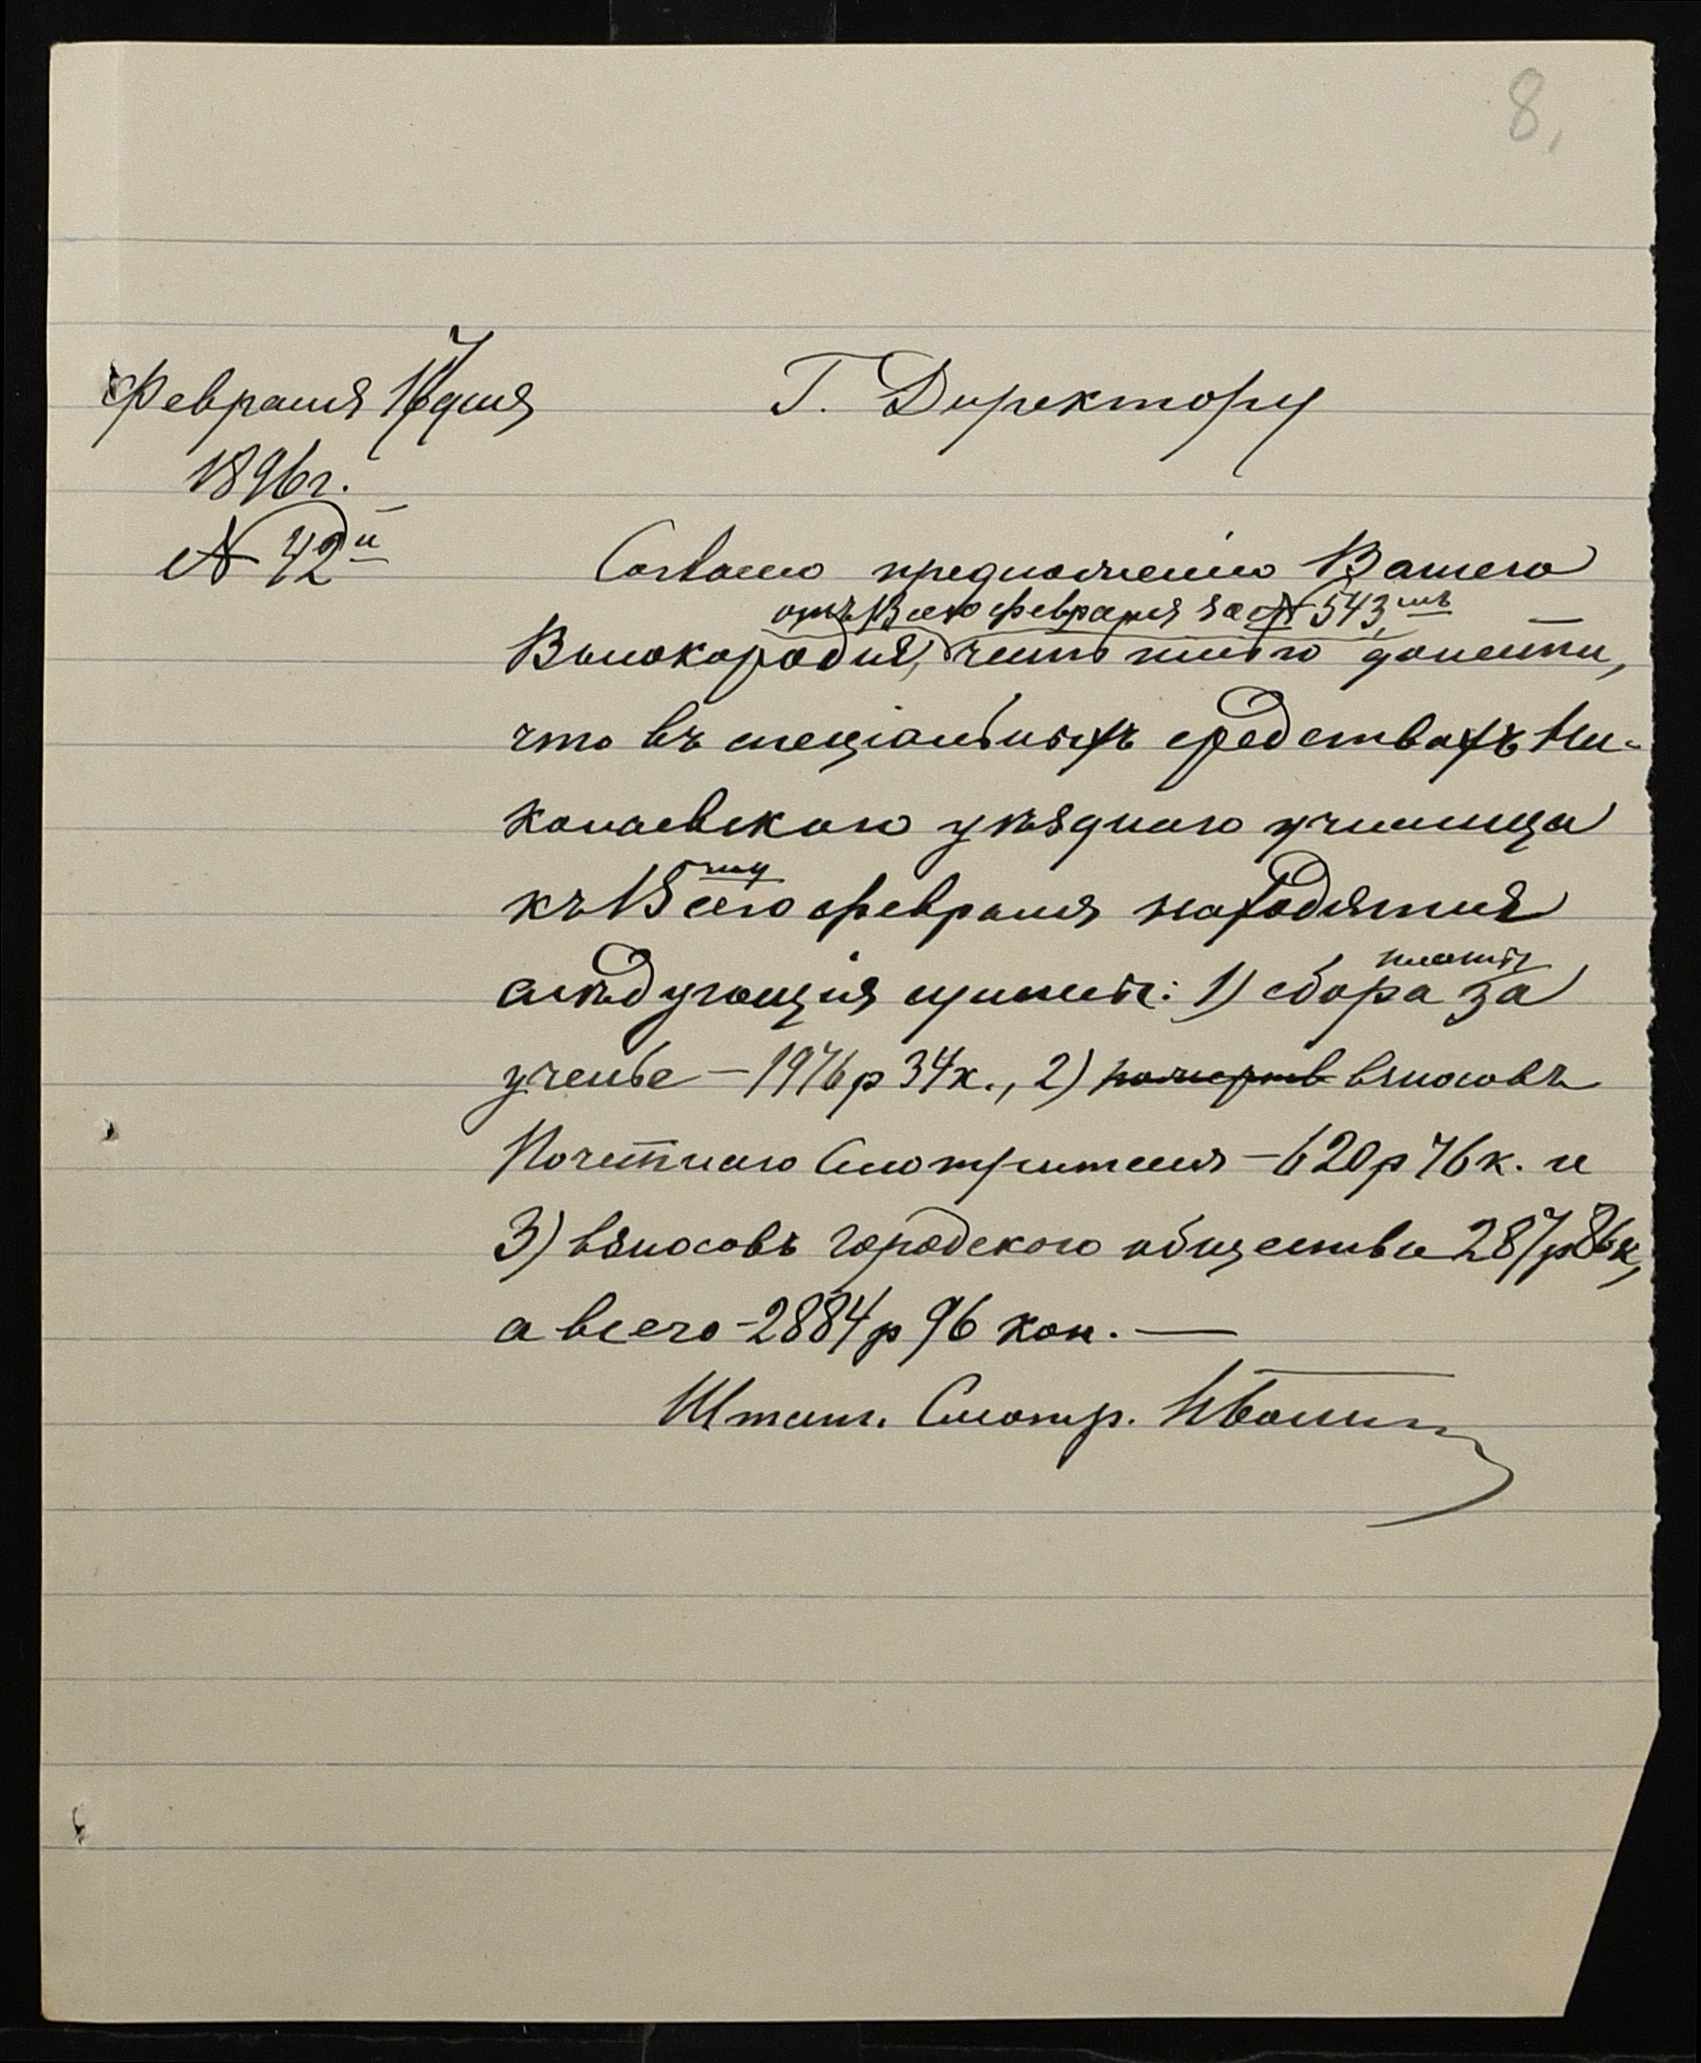 8,
Февраля 17 дня
1896 г.
№ 42й
Г. Директору
Согласно предложенiю Вашего
отъ 13 сего февраля за № 543мъ,
Высокородiя, честь имѣю донести,
что въ спецiальныхъ средствахъ Ни-
колаевскаго уѣзднаго училища
къ 15му сего февраля находятся
слѣдующiя суммы: 1) сбора платы за
ученье – 1976 р 34 к., 2) взносовъ
Почетнаго Смотрителя – 620 р 76 к. и
3) взносовъ городского общества 287 р 86 к,
а всего – 2884 р 96 коп. —
Штат. Смотр. Ивани